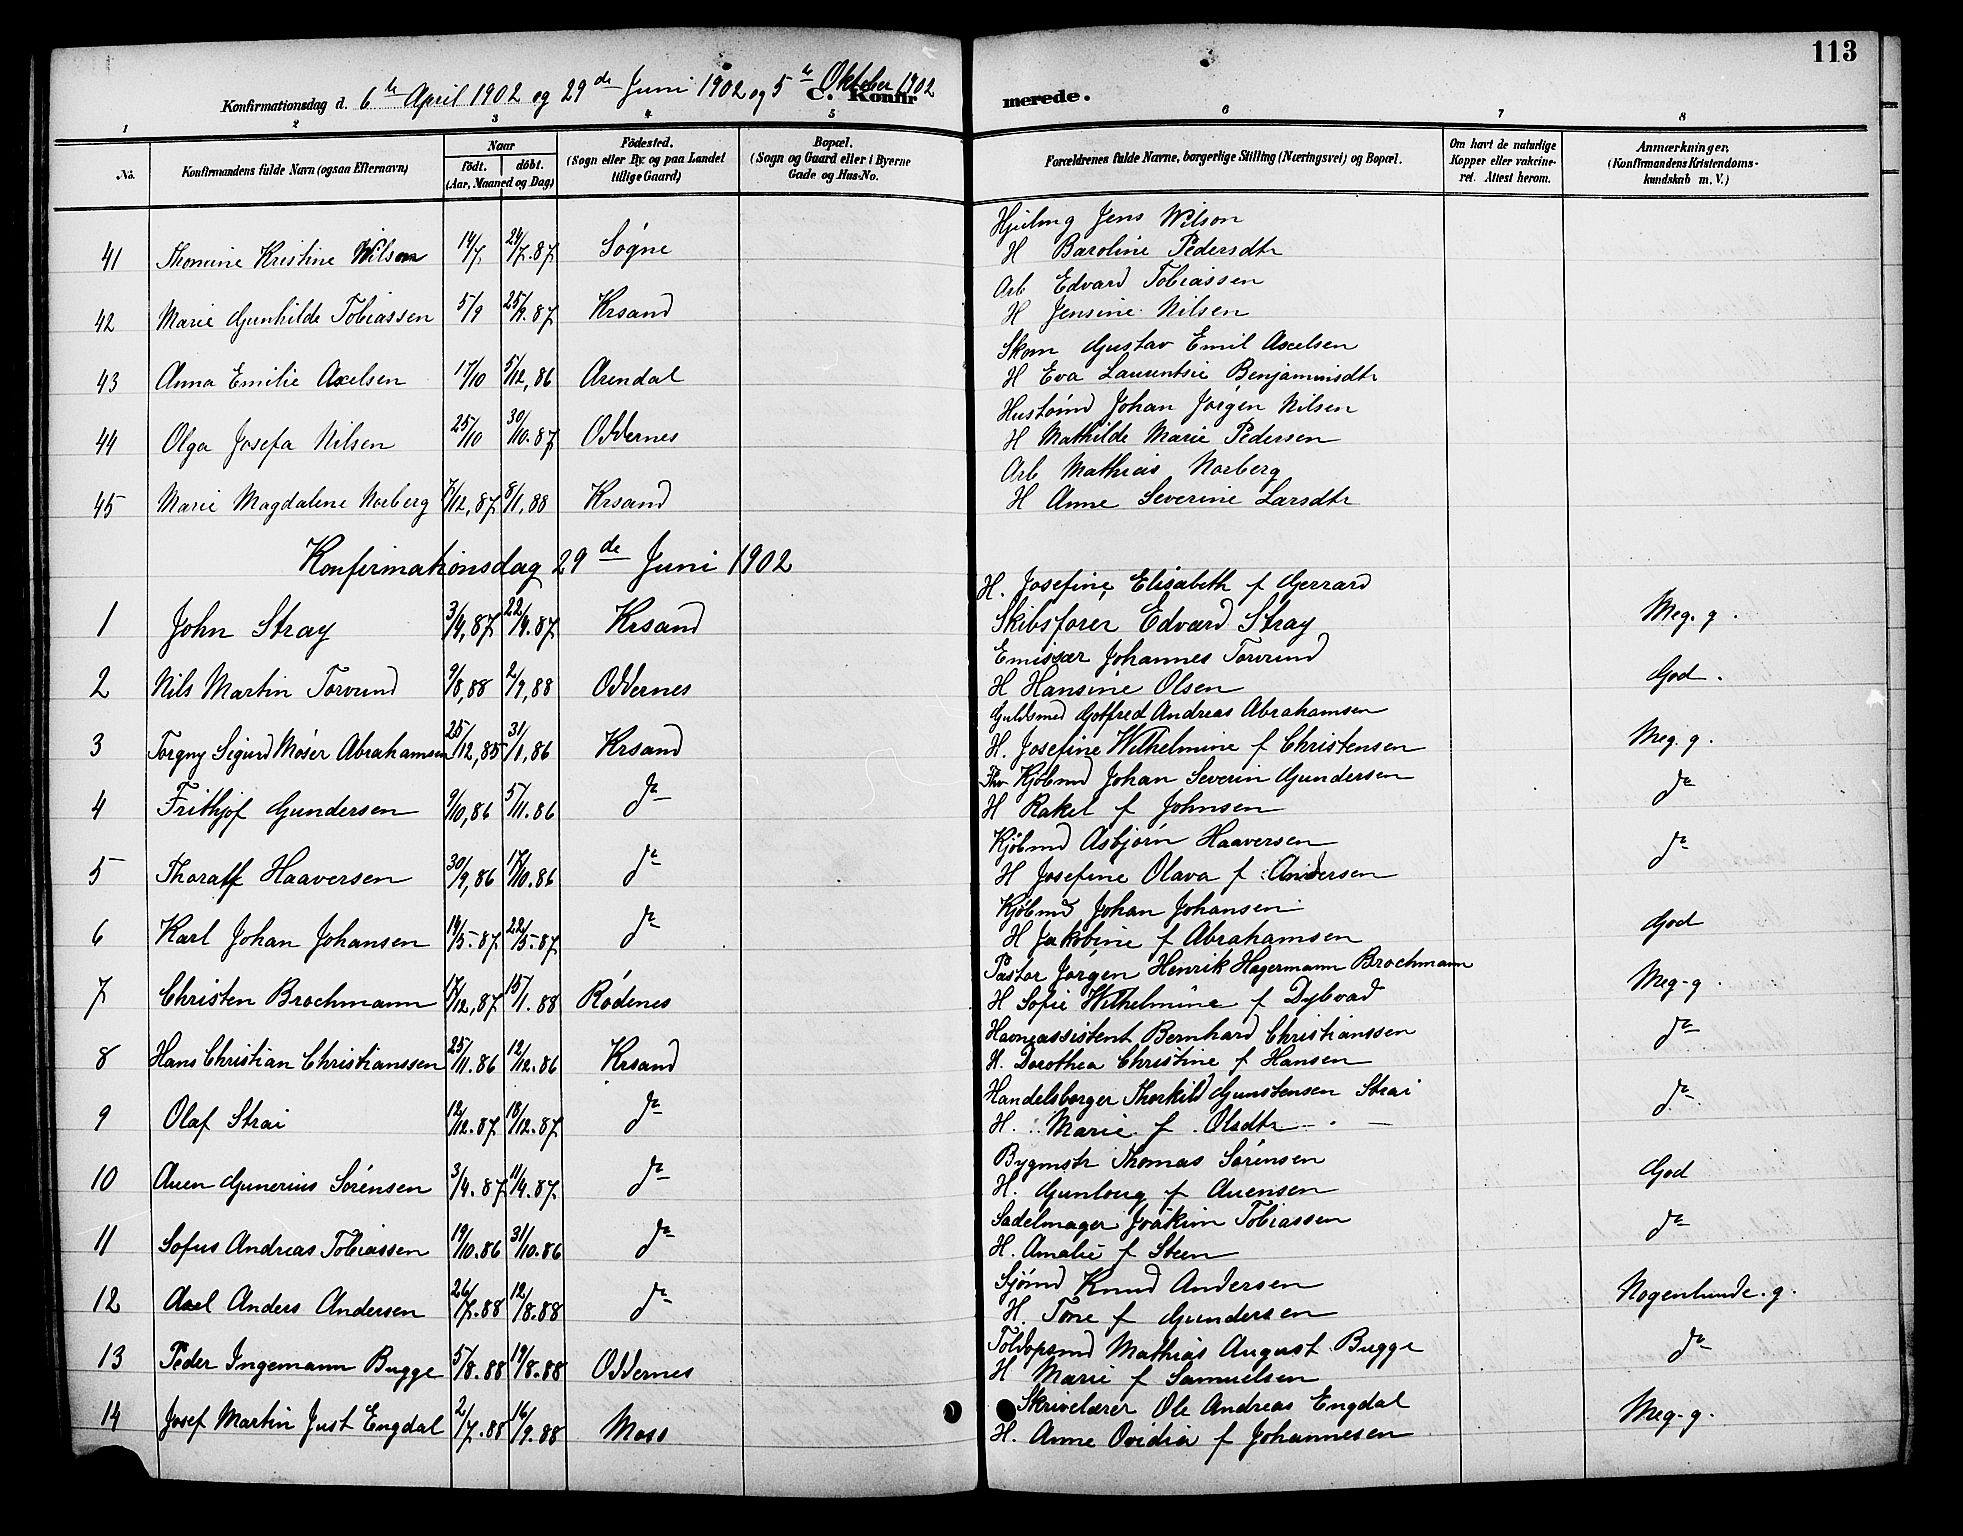 113
Konfirmationsdag d. 6te April 1902 og 29de Juni 1902 og 5te Oktober 1902
C. Konfirmerede.
1 2 3 4 5 6 7 8
No. Konfirmandens fulde Navn (ogsaa Efternavn) Naar født. døbt. (Aar, Maaned og Dag) Fødested. (Sogn eller By, og paa Landet tillige Gaard) Bopæl. (Sogn og Gaard eller i Byerne Gade og Hus-No. Forældrenes fulde Navne, borgerlige Stilling (Næringsvei) og Bopæl. Om havt de naturlige Kopper eller vakcineret. Attest herom. Anmærkninger, (Konfirmandens Kristendomskundskab m. V.)
Jens Wilson
41 Thomine Kristine Wilson 14/7 24/7.87 Søgne H Baroline Pedersdtr
Arb Edvard Tobiassen
42 Marie Gunhilde Tobiassen 5/9 25/9.87 Krsand H Jensine Nilsen
Skom Gustav Emil Axelsen
43 Anna Emilie Axelsen 17/10 5/12,86 Arendal H Eva Laurentsie Benjaminsdtr
Hustømd Johan Jørgen Nilsen
44 Olga Josefa Nilsen 25/10 30/10.87 Oddernes H Mathilde Marie Pedersen
Arb Mathias Norberg
45 Marie Magdalene Norberg 7/12,87 8/1,88 Krsand H Anne Severine Larsdtr
Konfirmationsdag 29de Juni 1902
H. Josefine Elisabeth f Gerrard
1 John Stray 3/9,87 22/9.87 Krsand Skibsfører Edvard Stray Meg. g.
Emissær Johannes Torvund
2 Nils Martin Torvund 9/8,88 2/9,88 Oddernes H Hansine Olsen God.
Guldsmed Gotfred Andreas Abrahamsen
3 Torgny Sigurd Møser Abrahamsen 25/12,85 31/1,86 Krsand H. Josefine Wilhelmine f Christensen Meg. g.
Kjøbmd Johan Severin Gundersen
4 Frithjof Gundersen 9/10,86 5/11.86 do H Rakel f Johnsen do
Kjøbmd Asbjørn Haaversen
5 Thoralf Haaversen 30/9,86 17/10.86 do H Josefine Olava f. Andersen do
Kjøbmd Johan Johansen
6 Karl Johan Johansen 14/5-87 22/5-87 do H Jakobine f Abrahamsen God
Pastor Jørgen Henrik Hagermann Brochmann
7 Christen Brochmann 17/12,87 15/1.88 Rødenes H Sofie Wilhelmine f Dybvad Meg-g.
Havneassistent Bernhard Christianssen
8 Hans Christian Christianssen 25/11.86 12/12.86 Krsand H. Dorothea Christine f Hansen do
Handelsborger Thorkild Gunstensen Strai
9 Olaf Strai 12/12.87 18/12.87 do H. Marie f. Olsdtr - do
Bygmstr Thomas Sørensen
10 Auen Gunerius Sørensen 3/4.87 11/4.87 do H. Gunloug f Auensen God
Sadelmager Joakim Tobiassen
11 Sofus Andreas Tobiassen 19/10.86 31/10.86 do H. Amalie f Steen do
Sjømd Knud Andersen
12 Axel Anders Andersen 26/7.88 12/8.88 do H. Tone f Gundersen Nogenlunde. g.
Toldopsmd Mathias August Bugge
13 Peder Ingemann Bugge 5/8.88 19/8.88 Oddernes H Marie f Samuelsen do
Skrivelærer Ole Andreas Engdal
14 Josef Martin Just Engdal 2/7.88 16/9.88 Moss H. Anne Ovidia f Johannesen Meg-g.